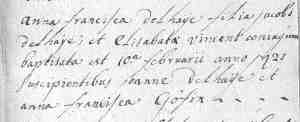 Anna francisca delhaÿe filia Jacobi
delhaÿe; et Elisabetæ viment coniugum
baptisata est 10a februarii anno 1721
suscipientibus joanne delhaÿe et
anna francisca Gossin